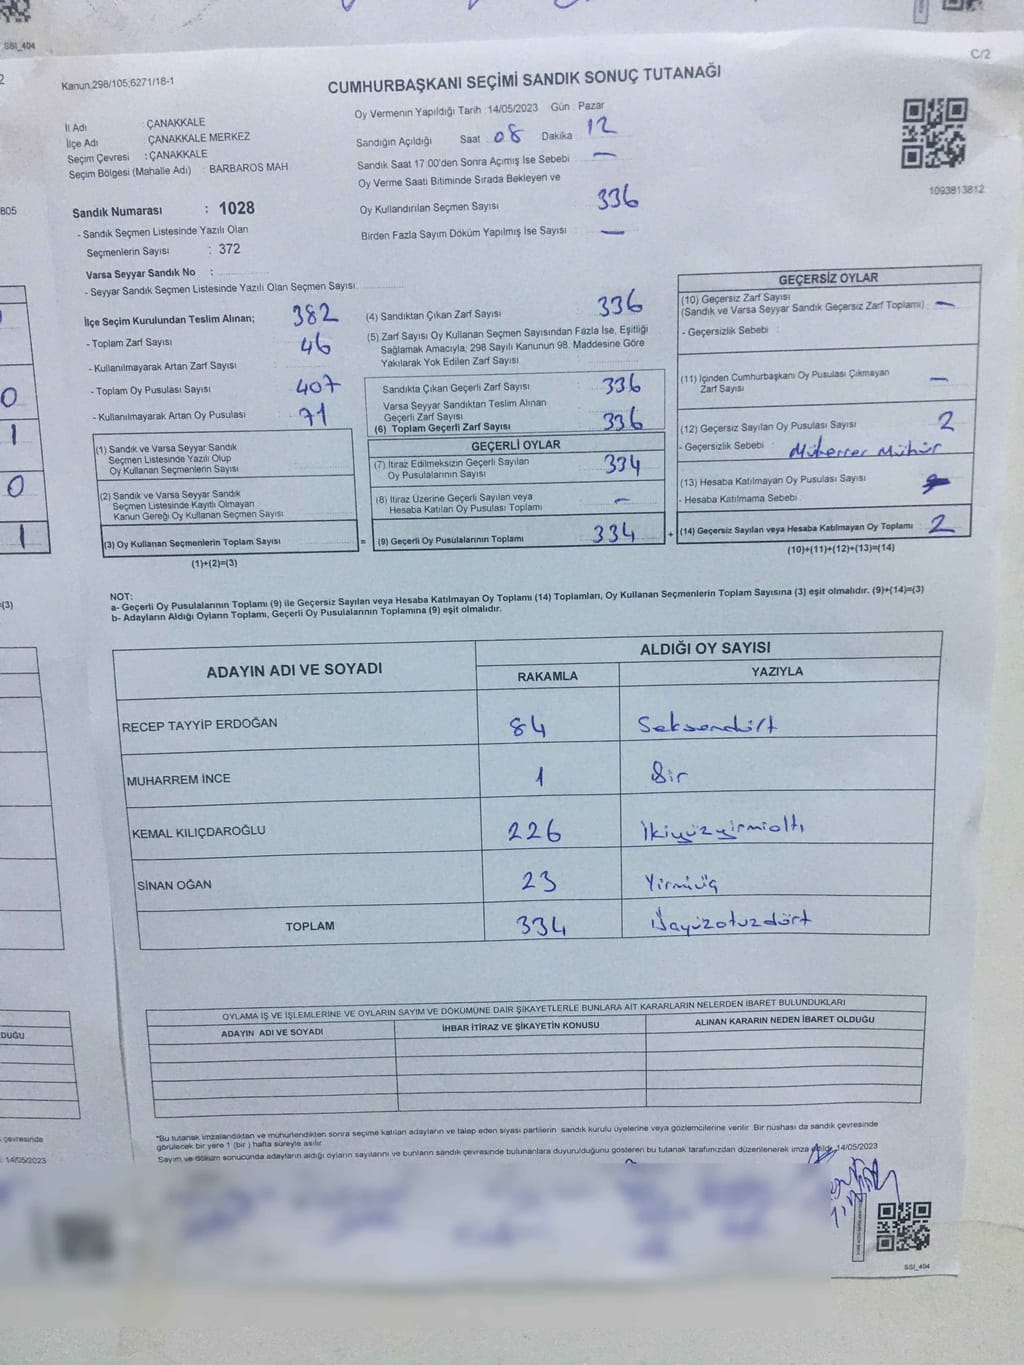 SSI_404
C/2
Kanun,298/105,6271/18-1
CUMHURBAŞKANI SEÇİMİ SANDIK SONUÇ TUTANAĞI
İl Adı : ÇANAKKALE
İlçe Adı : ÇANAKKALE MERKEZ
Seçim Çevresi : ÇANAKKALE
Seçim Bölgesi (Mahalle Adı) : BARBAROS MAH
Oy Vermenin Yapıldığı Tarih :14/05/2023 Gün : Pazar
Sandığın Açıldığı Saat : 08 Dakika : 12
Sandık Saat 17:00'den Sonra Açımış İse Sebebi —
Oy Verme Saati Bitiminde Sırada Bekleyen ve
Oy Kullandırılan Seçmen Sayısı 336
Birden Fazla Sayım Döküm Yapılmış İse Sayısı —
1093813812
Sandık Numarası : 1028
- Sandık Seçmen Listesinde Yazılı Olan
Seçmenlerin Sayısı : 372
Varsa Seyyar Sandık No :
- Seyyar Sandık Seçmen Listesinde Yazılı Olan Seçmen Sayısı
İlçe Seçim Kurulundan Teslim Alınan; 382
- Toplam Zarf Sayısı 46
- Kullanılmayarak Artan Zarf Sayısı :
- Toplam Oy Pusulası Sayısı : 407
- Kullanılmayarak Artan Oy Pusulası : 71
(1) Sandık ve Varsa Seyyar Sandık
Seçmen Listesinde Yazılı Olup
Oy Kullanan Seçmenlerin Sayısı
(2) Sandık ve Varsa Seyyar Sandık
Seçmen Listesinde Kayıtlı Olmayan
Kanun Gereği Oy Kullanan Seçmen Sayısı
(3) Oy Kullanan Seçmenlerin Toplam Sayısı =
(1)+(2)=(3)
(4) Sandıktan Çıkan Zarf Sayısı 336
(5) Zarf Sayısı Oy Kullanan Seçmen Sayısından Fazla İse, Eşitliği
Sağlamak Amacıyla; 298 Sayılı Kanunun 98. Maddesine Göre
Yakılarak Yok Edilen Zarf Sayısı
Sandıkta Çıkan Geçerli Zarf Sayısı 336
Varsa Seyyar Sandıktan Teslim Alınan
Geçerli Zarf Sayısı
(6) Toplam Geçerli Zarf Sayısı 336
GEÇERLİ OYLAR
(7) İtiraz Edilmeksizin Geçerli Sayılan
Oy Pusulalarının Sayısı 334
(8) İtiraz Üzerine Geçerli Sayılan veya
Hesaba Katılan Oy Pusulası Toplamı —
(9) Geçerli Oy Pusulalarının Toplamı 334 +
GEÇERSİZ OYLAR
(10) Geçersiz Zarf Sayısı
(Sandık ve Varsa Seyyar Sandık Geçersiz Zarf Toplamı) : —
- Geçersizlik Sebebi :
(11) İçinden Cumhurbaşkanı Oy Pusulası Çıkmayan
Zarf Sayısı —
(12) Geçersiz Sayılan Oy Pusulası Sayısı 2
- Geçersizlik Sebebi : Mükerrer Mühür
(13) Hesaba Katılmayan Oy Pusulası Sayısı
- Hesaba Katılmama Sebebi :
(14) Geçersiz Sayılan veya Hesaba Katılmayan Oy Toplamı 2
(10)+(11)+(12)+(13)=(14)
NOT:
a- Geçerli Oy Pusulalarının Toplamı (9) ile Geçersiz Sayılan veya Hesaba Katılmayan Oy Toplamı (14) Toplamları, Oy Kullanan Seçmenlerin Toplam Sayısına (3) eşit olmalıdır. (9)+(14)=(3)
b- Adayların Aldığı Oyların Toplamı, Geçerli Oy Pusulalarının Toplamına (9) eşit olmalıdır.
ADAYIN ADI VE SOYADI
ALDIĞI OY SAYISI
RAKAMLA YAZIYLA
RECEP TAYYİP ERDOĞAN 84 Seksendört
MUHARREM İNCE 1 Bir
KEMAL KILIÇDAROĞLU 226 İkiyüzyirmialtı
SİNAN OĞAN 23 Yirmiüç
TOPLAM 334 Üçyüzotuzdört
OYLAMA İŞ VE İŞLEMLERİNE VE OYLARIN SAYIM VE DÖKÜMÜNE DAİR ŞİKAYETLERLE BUNLARA AİT KARARLARIN NELERDEN İBARET BULUNDUKLARI
ADAYIN ADI VE SOYADI İHBAR İTİRAZ VE ŞİKAYETİN KONUSU ALINAN KARARIN NEDEN İBARET OLDUĞU
*Bu tutanak imzalandıktan ve mühürlendikten sonra seçime katılan adayların ve talep eden siyasi partilerin sandık kurulu üyelerine veya gözlemcilerine verilir. Bir nüshası da sandık çevresinde
görülecek bir yere 1 (bir ) hafta süreyle asılır.
Sayım ve döküm sonucunda adayların aldığı oyların sayılarını ve bunların sandık çevresinde bulunanlara duyurulduğunu gösteren bu tutanak tarafımızdan düzenlenerek imza edildi. 14/05/2023
SSI_404
2
805
0
1
0
1
=(3)
DUĞU
çevresinde
14/05/2023